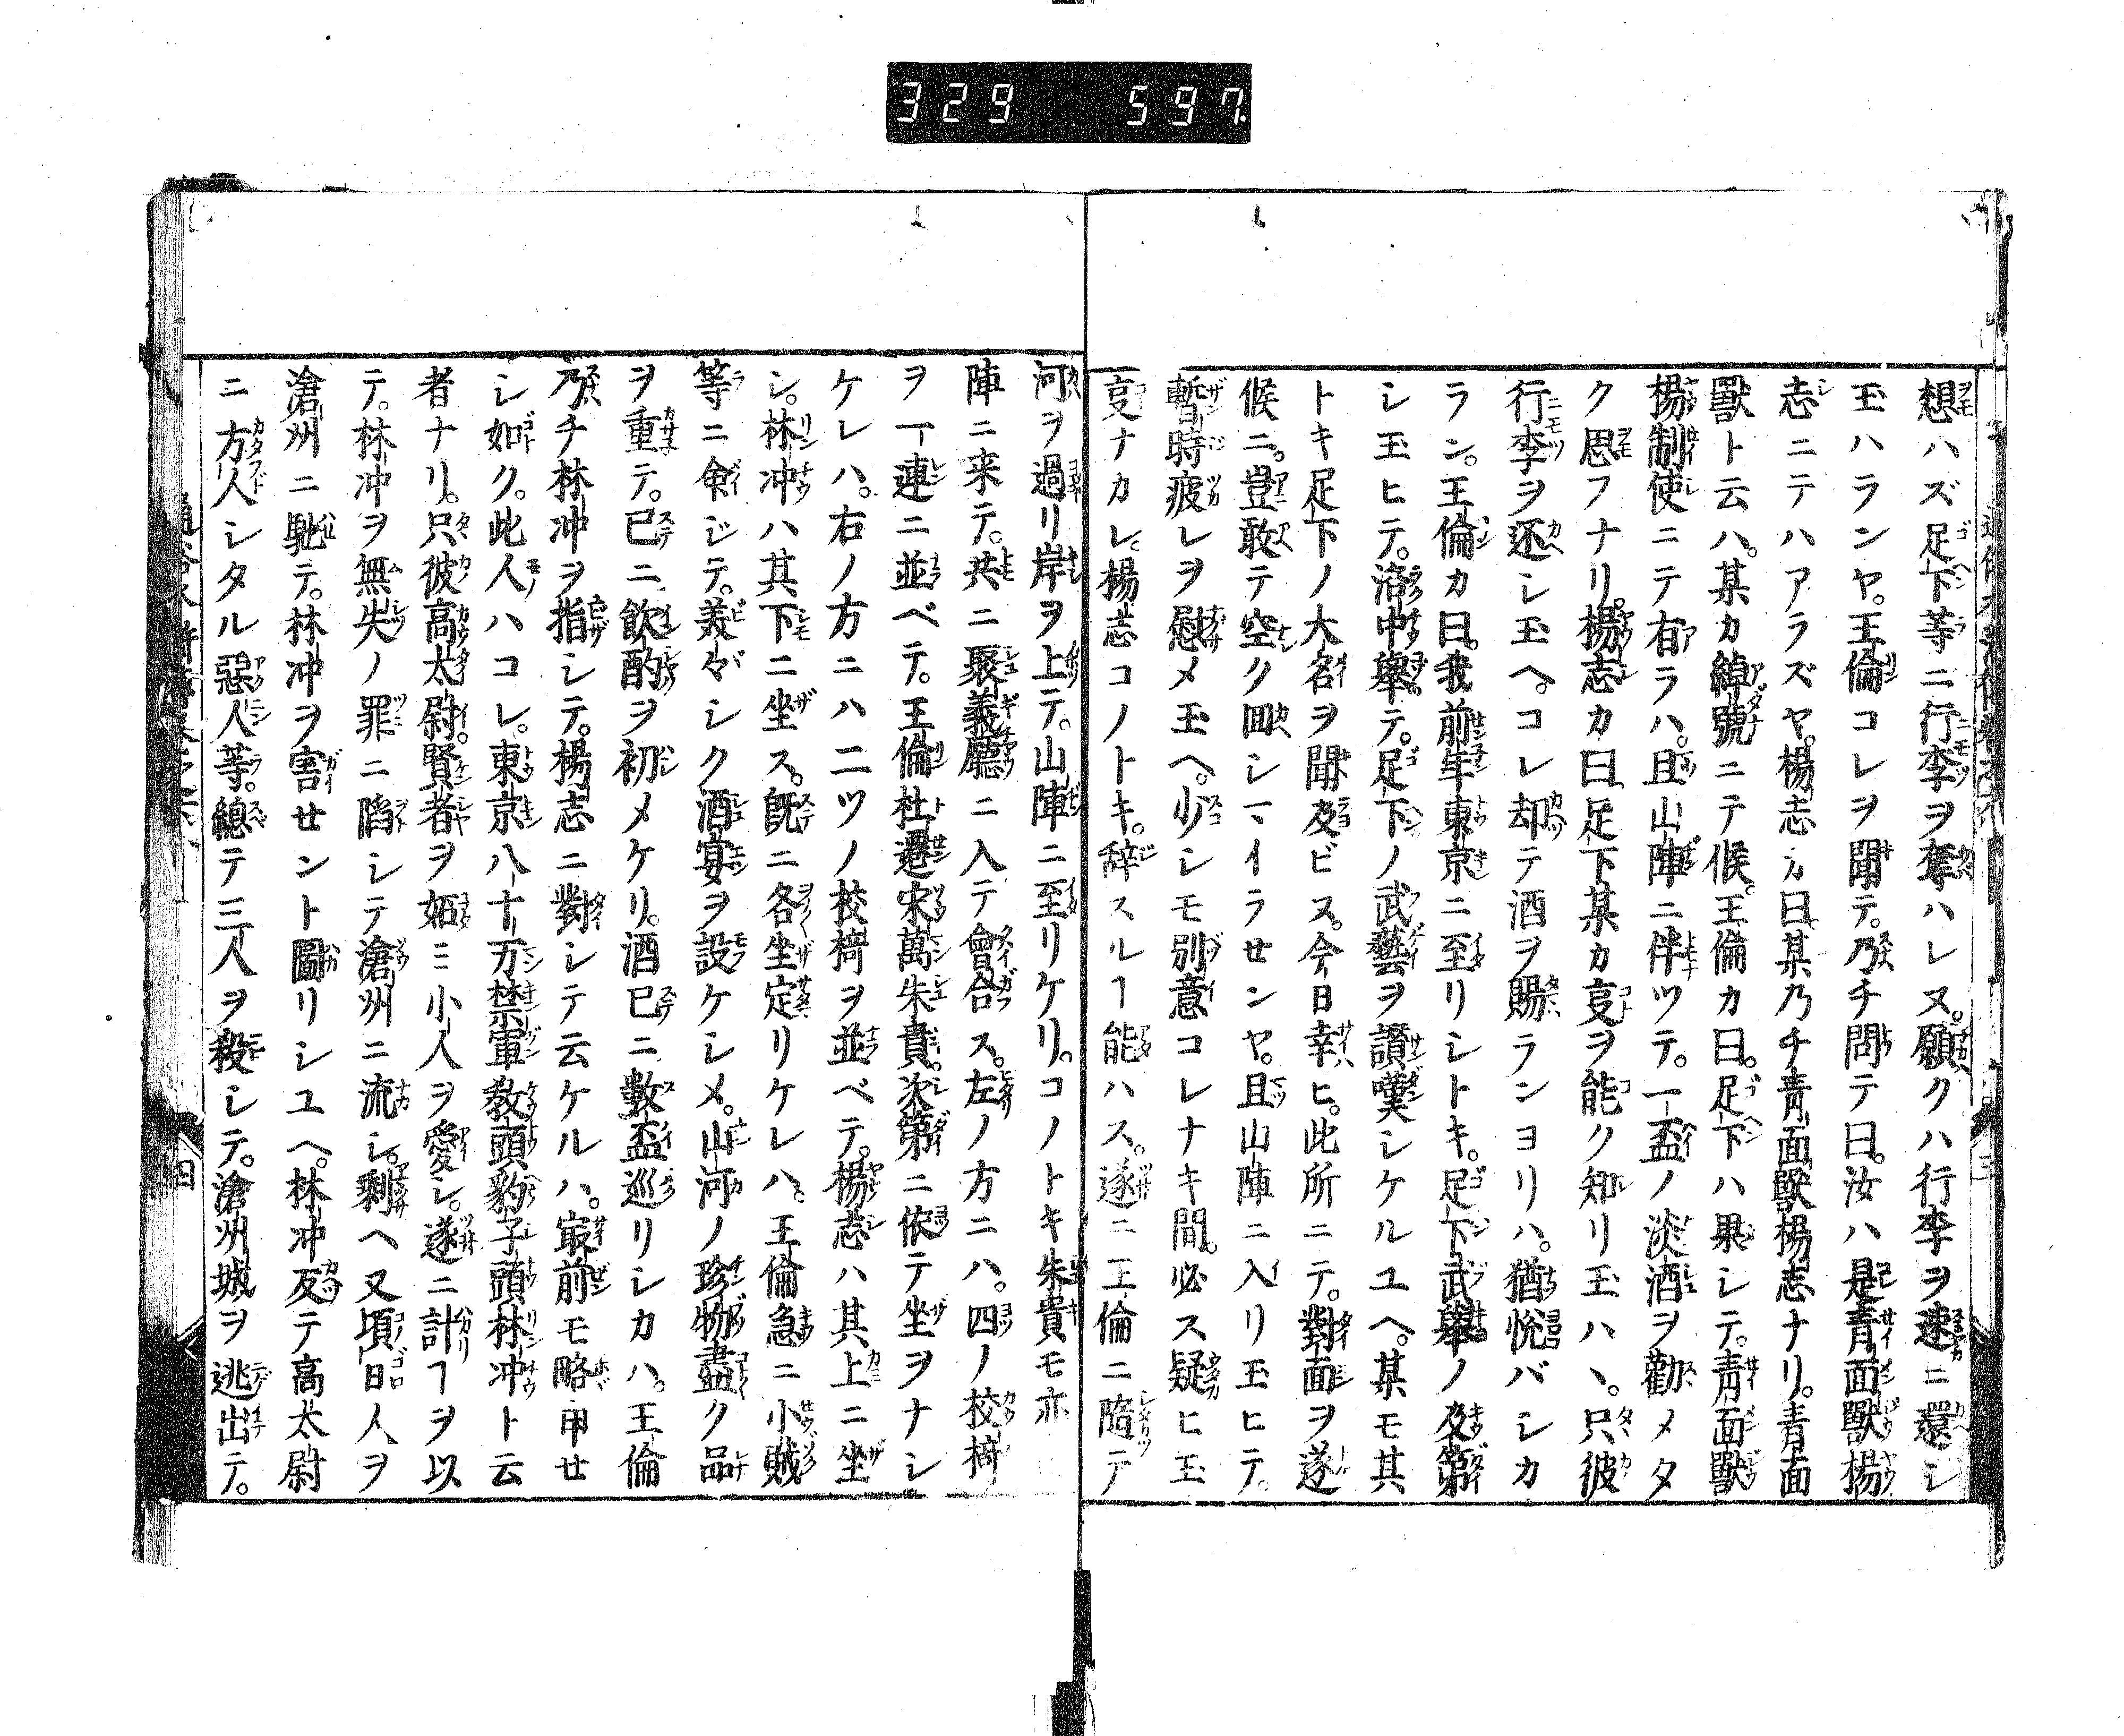 329 597
想ハズ足下等ニ行李ヲ奪ハレヌ。願クハ行李ヲ速ニ還シ
玉ハランヤ。王倫コレヲ聞テ。乃チ問テ曰。汝ハ是青面獸楊
志ニテハアラズヤ。楊志カ曰。某乃チ青面獸楊志ナリ。青面
獸ト云ハ。某カ綽號ニテ候。王倫カ曰。足下ハ果シテ。青面獸
楊制使ニテ有ラハ。且山陣ニ伴ツテ。一盃ノ淡酒ヲ勸メタ
ク思フナリ。楊志カ曰足下某カ㕝ヲ能ク知リ玉ハヽ。只彼
行李ヲ还シ玉ヘ。コレ却テ酒ヲ賜ランヨリハ。猶悅バシカ
ラン。王倫カ曰。我前年東京ニ至リシトキ。足下武擧ノ及第
シ玉ヒテ。洛中擧テ。足下ノ武藝ヲ讃嘆シケルユヘ。某モ其
トキ足下ノ大名ヲ聞及ビヌ。今日幸ヒ。此所ニテ。對面ヲ遂
候ニ。豈敢テ空ク囬シマイラセンヤ。且山陣ニ入リ玉ヒテ。
暫時疲レヲ慰メ玉ヘ。少シモ別意コレナキ間。必ス疑ヒ玉
㕝ナカレ。楊志コノトキ。辞スルヿ能ハス。遂ニ王倫ニ隨テ
河ヲ過リ岸ヲ上テ。山陣ニ至リケリ。コノトキ朱貴モ亦
陣ニ来テ。共ニ聚義廳ニ入テ會合ス。左ノ方ニハ。四ノ校椅
ヲ一連ニ並ベテ。王倫杜遷宋萬朱貴。次第ニ依テ坐ヲナシ
ケレハ。右ノ方ニハ二ツノ校椅ヲ並ベテ。楊志ハ其上ニ坐
シ。林冲ハ其下ニ坐ス。既ニ各坐定リケレハ。王倫急ニ小賊
等ニ命シテ。美々シク酒宴ヲ設ケシメ。山河ノ珍物盡ク品
ヲ重テ。已ニ飲酌ヲ初メケリ。酒已ニ數盃巡リシカハ。王倫
乃チ林冲ヲ指シテ。楊志ニ對シテ云ケルハ。㝡前モ略申セ
シ如ク。此人ハコレ。東京八十万禁軍教頭豹子頭林冲ト云
者ナリ。只彼高太尉。賢者ヲ妬ミ小人ヲ愛シ。遂ニ計ヿヲ以
テ。林冲ヲ無失ノ罪ニ陷シテ滄州ニ流シ。剰ヘ又頃日人ヲ
滄州ニ馳テ。林冲ヲ害セント圖リシユヘ。林冲反テ高太尉
ニ方人シタル惡人等。總テ三人ヲ殺シテ。滄州城ヲ逃出テ。
四